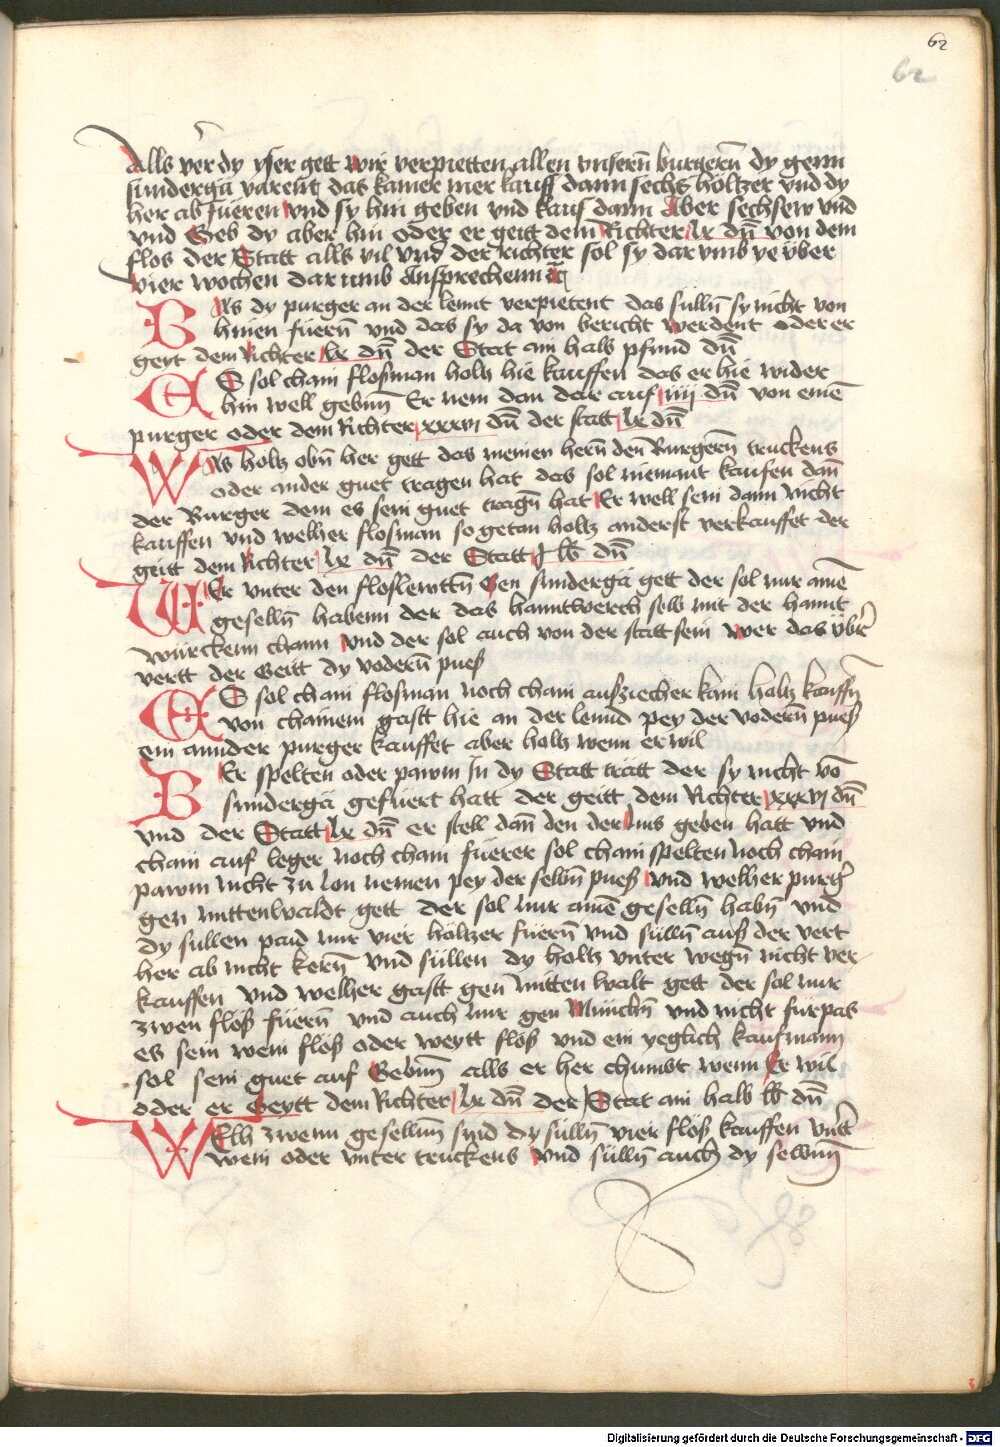 62
62
Alls ver dy yser gett wir verpietten allen unsern burgern dy genn
sundergä varent das kainer mer kauff dann sechs höltzer vnd dy
her ab fueren vnd sy hin geben vnd kauf dann Aber sechsew vnd
vnd Geb dy aber hin oder er geitt dem Richter lx dn von dem
flos der Statt alls vil vnd der richter sol sy dar vmb ye über
vier wochen dar umb Ansprechenn
Was dy purger an der lennt verpietent das sülln sy nicht von
hinnen fuern vnd das sy da von bericht werdent oder er
geyt dem Richter lx dn der Stat ain halb pfund dn
Es sol chain flosman holtz hie kauffen das er hie wider
hin well gebnn Er nem dan dar auf iiij dn von eine
purger oder dem Richter xxxvi dn der statt lx dn
Was holtz obn her gett das meinen hern den Burgern truckens
oder ander guet tragen hat das sol niemant kaufen dan
der Burger dem es sein guet tragn hat Er well sein dann nicht
kauffen vnd welher flosman so getan holtz anderst verkauffet der
geitt dem Richter lx dn der Statt j lb dn
Wer vnter den floslewttn Gen sundergä gett der sol nur aine
geselln habenn der das hanntwerch selb mit der hannt
würckenn chann vnd der sol auch von der statt sein wer das über
vertt der Geitt dy vodern pues
Es sol chain flosman noch chain aufziecher kain holtz kauffn
von chainem gastt hie an der lennd pey der vodern pues
ein annder purger kauffet aber holtz wenn er wil
Wer spelten oder pawm In dy Statt tratt der sy nicht vo
sundergä gefuert hatt der geitt dem Richter xxxvi dn
vnd der Statt lx dn er stell dan den der Ims geben hatt vnd
chain auf leger noch chain fuerer sol chain spelten noch chain
pawm nicht zu lon nemen pey der selbn pues vnd welher purger
gen mittenwaldt gett der sol nur aine geselln habn vnd
dy sullen paid nur vier höltzer fuern vnd sulln auß der vert
her ab nicht kern vnd süllen dy holtz vnter wegn nicht ver
kauffen vnd welher gastt gen mittenwalt gett der sol nur
zwen flöß fuern vnd auch nur gen Münchn vnd nicht fürpas
es sein wein flöß oder weytt flöß vnd ein yeglich kaufmann
sol sein guet auf Gebnn alls er her chumbt wenn Er wil
oder er Geytt dem Richter lx dn der Stat ain halb lb dn
Welh zwenn gesellnn sind dy sulln vier flöß kauffen vntter
wein oder vnter truckens vnd sulln auch dy selbnn
Digitalisierung gefördert durch die Deutsche Forschungsgemeinschaft - DFG